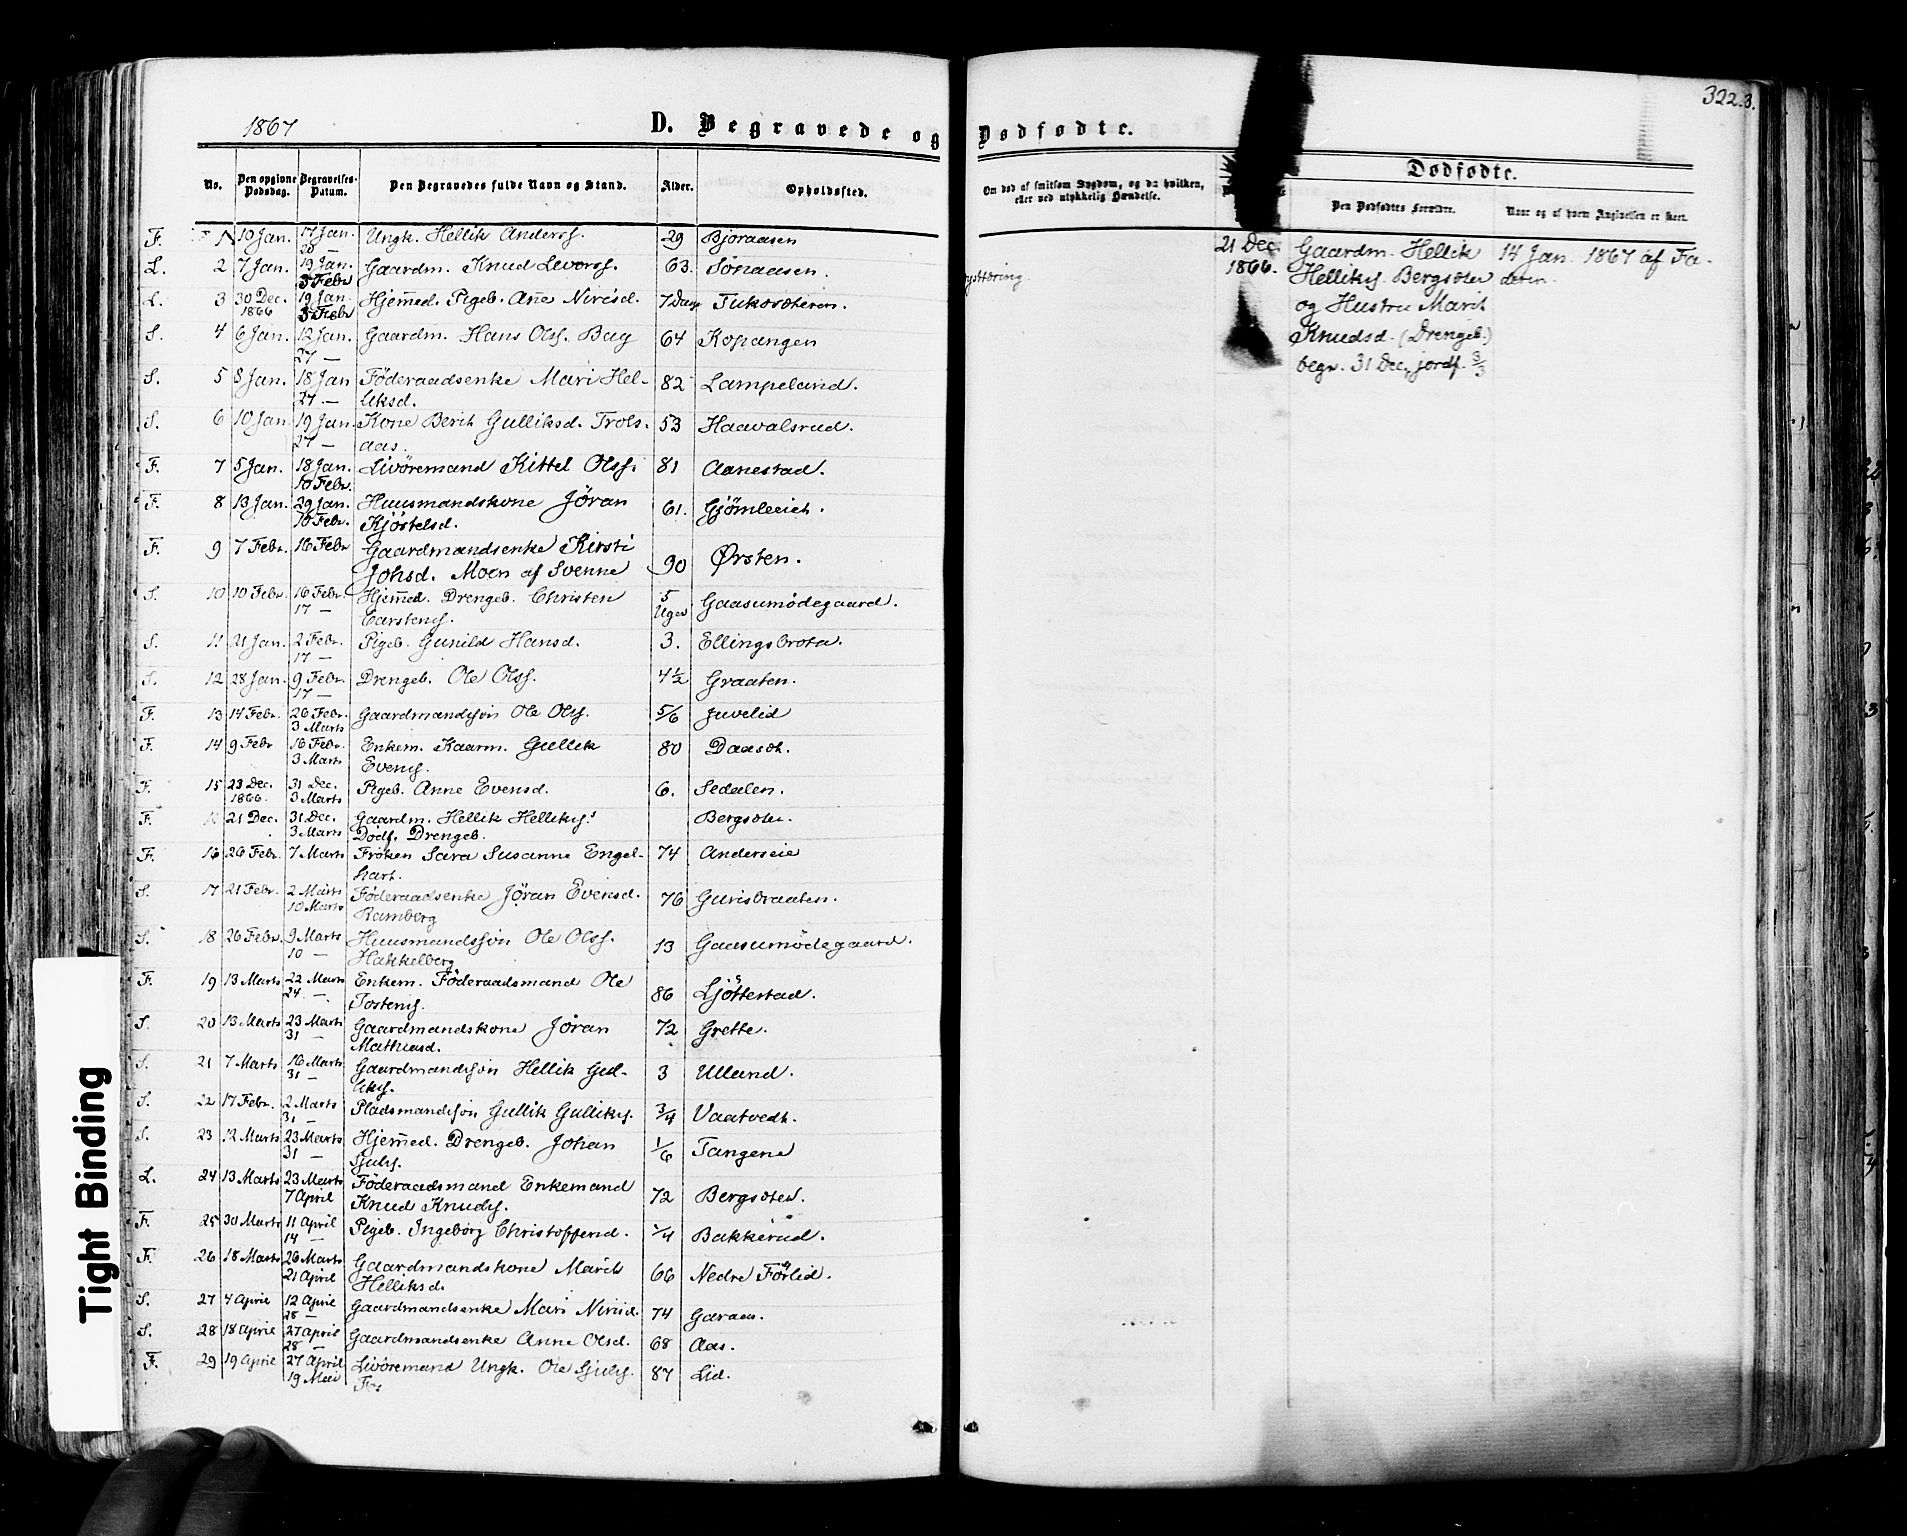 1867
D. Begravede og Dødfødte.
322.
No. Den opgivne Dødsdag. Begravelses-Datum. Den Begravedes fulde Navn og Stand. Alder. Opholdssted. Om død af smitsom Sygdom, og da hvilken, eller ved ulykkelig Hændelse.
Dødfødte.
Den Dødfødtes Forældre. Naar og af hvem Angivelsen er skeet.
F. 1 10 Jan. 17 Jan. Ungk. Hellik Anderss. 29 Bjoraasen
20 —
L. 2 7 Jan. 19 Jan. Gaardm. Knud Levorss. 63. Sønaasen.
3 Febr
L. 3 30 Dec. 19 Jan. Hjemmed. Pigeb. Anne Nirisd. 7 Dage Tukusæteren.
1866 3 Febr
S. 4 6 Jan. 12 Jan. Gaardm. Hans Olss. Bag 64 Kopangen
27 —
S. 5 8 Jan. 18 Jan Föderaadsenke Mari Hel- 82 Lampeland.
27 — liksd.
S. 6 10 Jan. 19 Jan. Kone Berit Gulliksd. Trols- 53 Haavalsrud.
27 — aas.
F. 7 5 Jan. 18 Jan. Livöremand Kittel Olss. 81 Aanestad.
10 Febr.
F. 8 13 Jan. 29 Jan. Huusmandskone Jöran 61.
10 Febr. Kjöstelsd.
F. 9 7 Febr. 16 Febr Gaardmandsenke Kirsti 90 Ørsten.
Johsd. Moen af Svenne
S. 10 10 Febr. 16 Febr. Hjemmed. Drengeb. Christen 5 Uger Gaasumødegaard.
17 — Carstens.
S. 11 21 Jan. 2 Febr. Pigeb. Gunild Hansd. 3. Ellingsbrota.
17 —
S. 12 28 Jan. 9 Febr. Drengeb. Ole Olss. 4½ Graaten.
17 —
F. 13 14 Febr. 26 Febr. Gaardmandssön Ole Olss. 5/6 Juvelid
3 Marts
F. 14 9 Febr 16 Febr. Enkem. Kaarm. Gullik 80 Daaset.
3 Marts Evens.
F. 15 23 Dec. 31 Dec. Pigeb. Anne Evensd. 6. Sedalen.
1866. 3 Marts
F. 21 Dec. 31 Dec. Gaardm. Hellik Helliks.s Bergsæter.
3 Marts Dödf. Drengeb.
F. 16 26 Febr. 7 Marts Fröken Sara Susanne Engel- 74 Anderseie
hart.
S. 17 21 Febr. 2 Marts Föderaadsenke Jöran Evensd. 76 Gurisbraaten.
10 Marts Ramberg
S. 18 26 Febr. 9 Marts Huusmandssön Ole Olss. 13 Gaasumødegaard.
10 — Hakkelberg
F. 19 13 Marts 22 Marts Enkem. Föderaadsmand Ole 86 Ljöterstad.
24 — Tostens.
S. 20 13 Marts 23 Marts Gaardmandskone Jöran 72 Grette.
31 — Mathiasd.
S. 21 7 Marts 16 Marts Gaardmandssön Hellik Gul- 3 Ulland.
31 — liks.
S. 22 17 Febr. 2 Marts Pladsmandssön Gullik Gulliks. 3/4 Vaatvedt.
31 —
S. 23 12 Marts 23 Marts Hjemmed. Drengeb. Johan 1/6 Tangene
31 — Sjuls.
L. 24 13 Marts 23 Marts Föderaadsmand Enkemand 72 Bergsæter.
7 April Knud Knuds.
F. 25 30 Marts 11 April Pigeb. Ingeborg Christoffersd. 1/4 Bakkerud.
14 —
F. 26 18 Marts 26 Marts Gaardmandskone Marit 66 Nedre Förlid.
21 April Helliksd.
S. 27 4 April 12 April Gaardmandsenke Mari Nirisd. 74 Garaas.
28 —
S. 28 18 April 27 April Gaardmandsenke Anne Olsd. 68 Aas.
28 —
F. 29 19 April 27 April Livöremand Ungk. Ole Sjuls. 87 Lid.
19 Mai Fos
21 Dec. Gaardm. Hellik 14 Jan. 1867 af Fa-
1866. Helliks. Bergsæter deren.
og Hustru Marit
Knudsd. (Drengeb.)
begr. 31 Dec, jordf. 3/3
Tight Binding